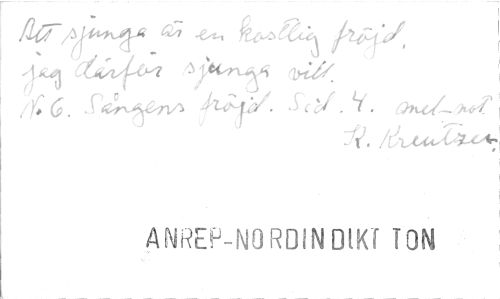 Att sjunga är en kostlig fröjd,
jag därför sjunga vill.
N. 6. Sångens fröjd. Sid. 4. mel-not
K. Kreutzer.
ANREP-NORDIN DIKT TON